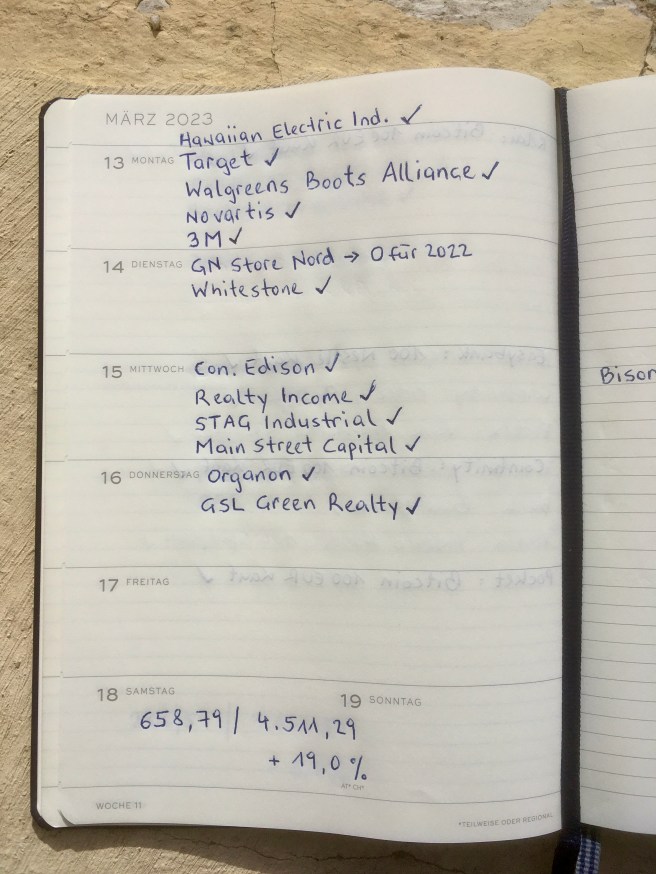 MÄRZ 2023
Hawaiian Electric Ind. ✓
13 MONTAG Target ✓
Walgreens Boots Alliance ✓
Novartis ✓
3M ✓
14 DIENSTAG GN Store Nord → 0 für 2022
Whitestone ✓
15 MITTWOCH Con. Edison ✓
Realty Income ✓
STAG Industrial ✓
Main Street Capital ✓
16 DONNERSTAG Organon ✓
GSL Green Realty ✓
17 FREITAG
18 SAMSTAG
19 SONNTAG
658,79 / 4.511,29
+ 19,0 %
WOCHE 11
*TEILWEISE ODER REGIONAL
Bison